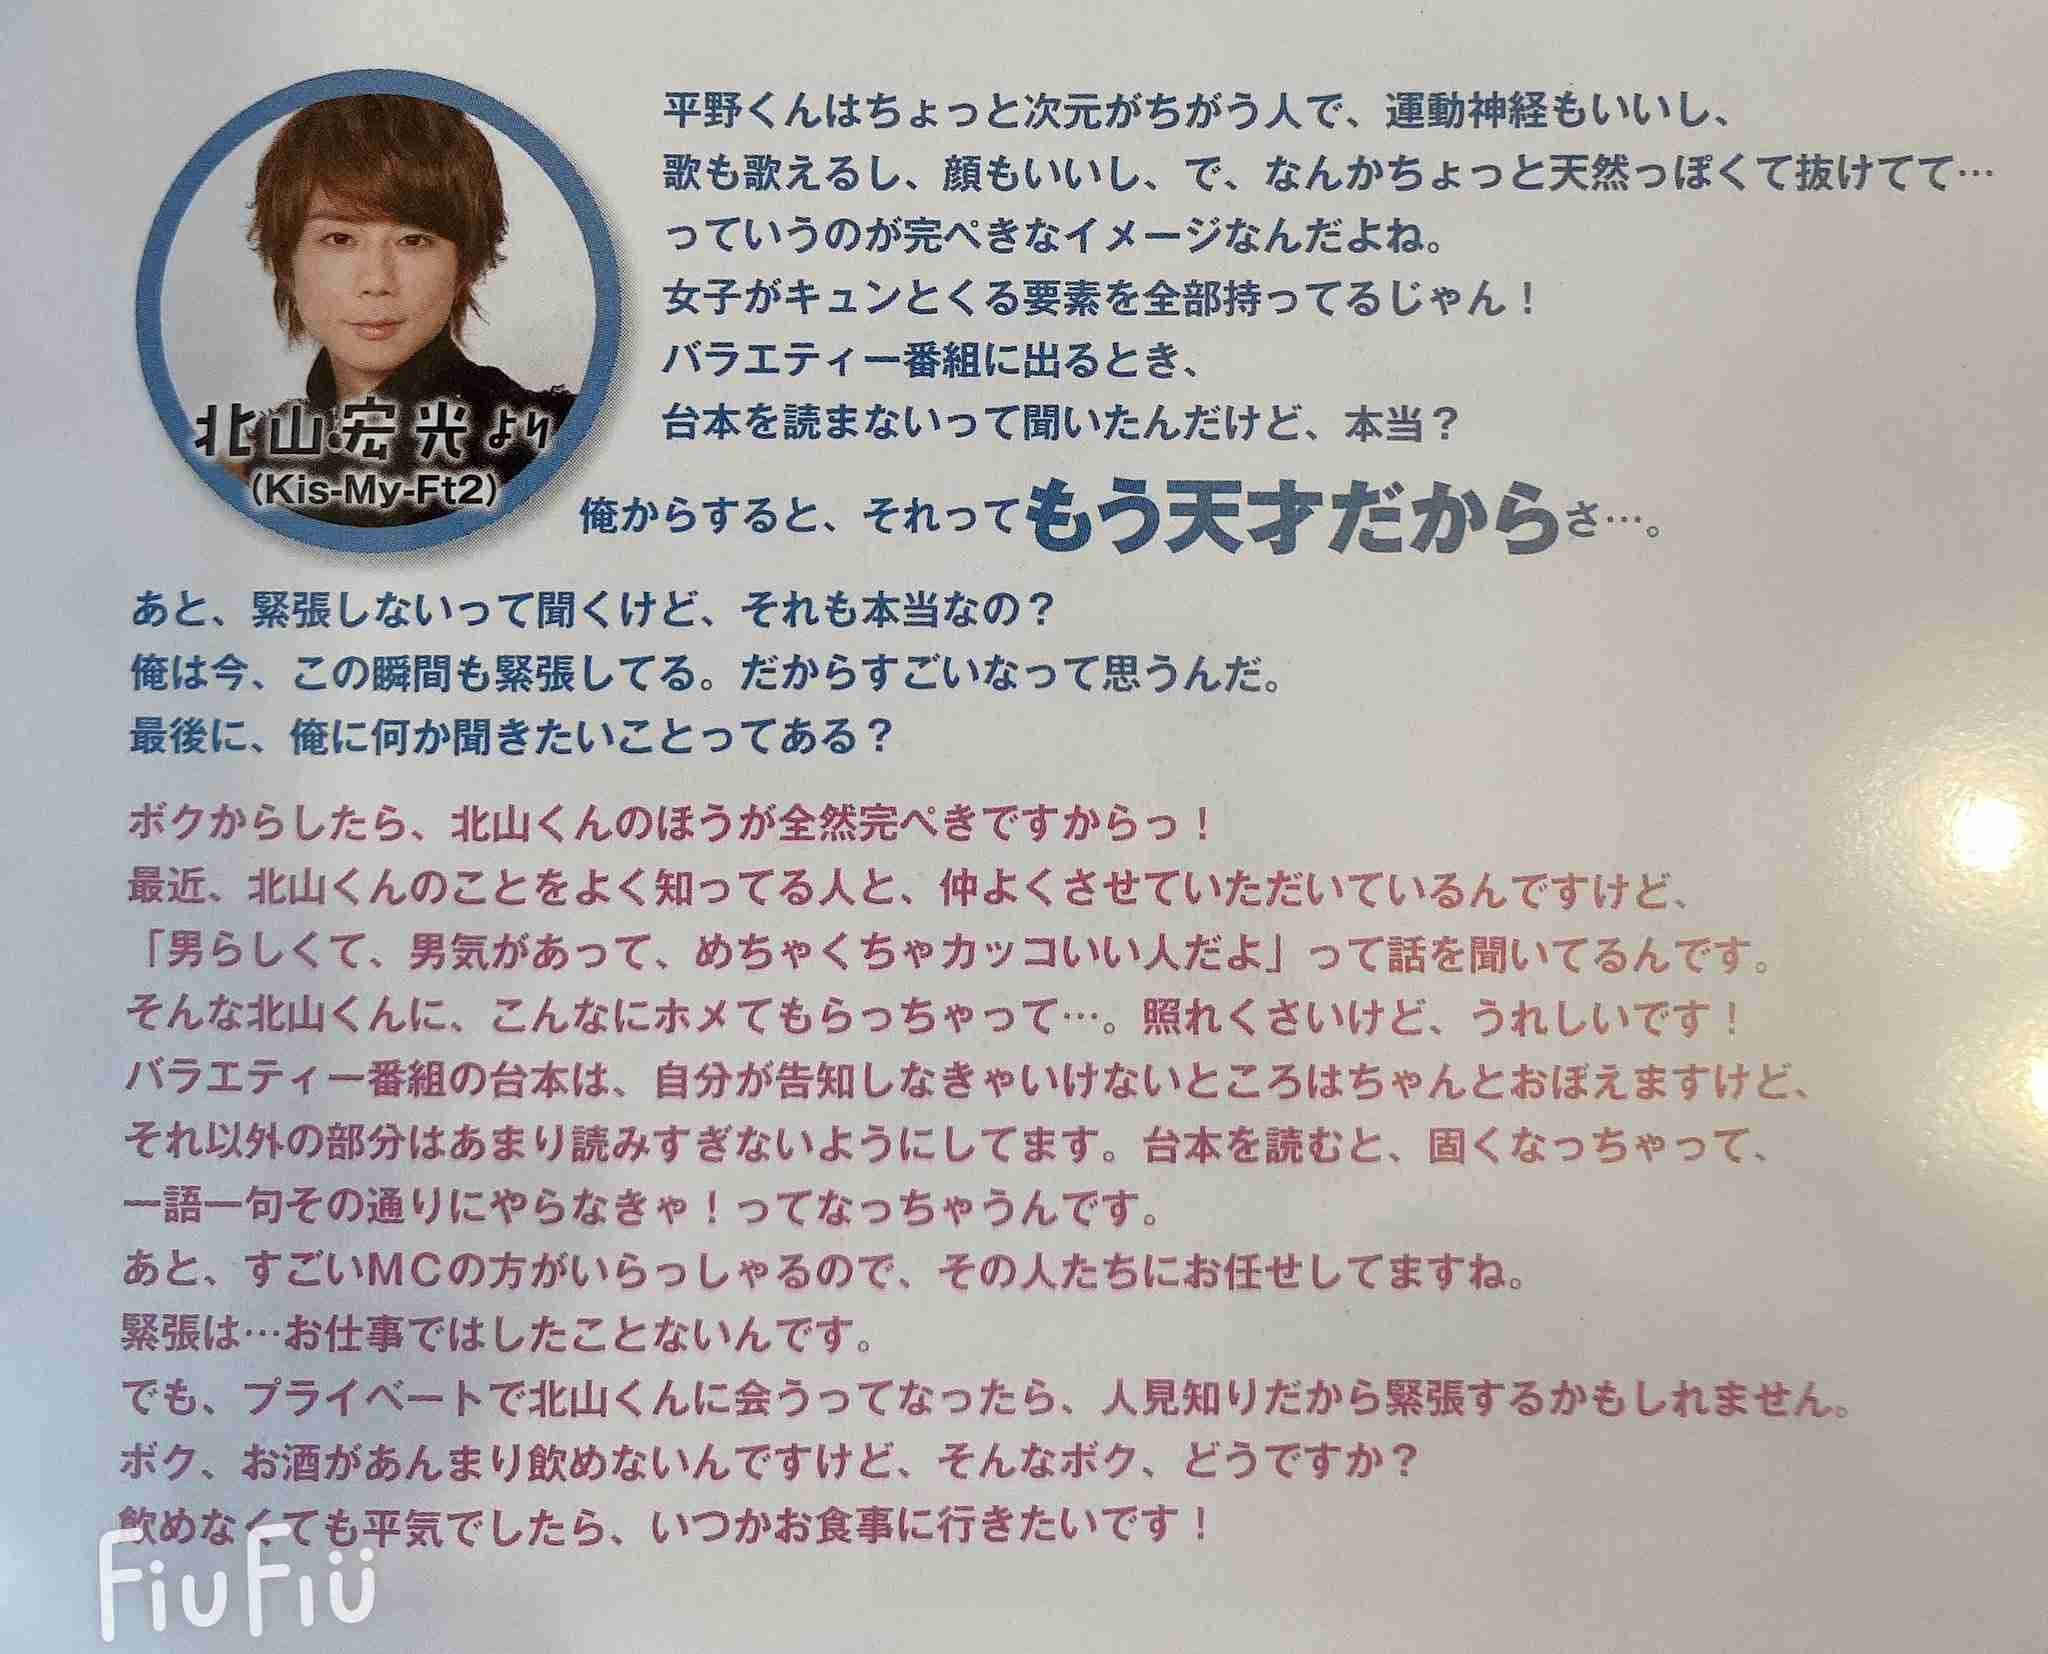 平野くんはちょっと次元がちがう人で、運動神経もいいし、
歌も歌えるし、顔もいいし、で、なんかちょっと天然っぽくて抜けてて…
っていうのが完ぺきなイメージなんだよね。
女子がキュンとくる要素を全部持ってるじゃん！
バラエティー番組に出るとき、
台本を読まないって聞いたんだけど、本当？
北山宏光より
(Kis-My-Ft2)
俺からすると、それってもう天才だからさ…。
あと、緊張しないって聞くけど、それも本当なの？
俺は今、この瞬間も緊張してる。だからすごいなって思うんだ。
最後に、俺に何か聞きたいことってある？
ボクからしたら、北山くんのほうが全然完ぺきですからっ！
最近、北山くんのことをよく知ってる人と、仲よくさせていただいているんですけど、
「男らしくて、男気があって、めちゃくちゃカッコいい人だよ」って話を聞いてるんです。
そんな北山くんに、こんなにホメてもらっちゃって…。照れくさいけど、うれしいです！
バラエティー番組の台本は、自分が告知しなきゃいけないところはちゃんとおぼえますけど、
それ以外の部分はあまり読みすぎないようにしてます。台本を読むと、固くなっちゃって、
一語一句その通りにやらなきゃ！ってなっちゃうんです。
あと、すごいMCの方がいらっしゃるので、その人たちにお任せしてますね。
緊張は…お仕事ではしたことないんです。
でも、プライベートで北山くんに会うってなったら、人見知りだから緊張するかもしれません。
ボク、お酒があんまり飲めないんですけど、そんなボク、どうですか？
飲めなくても平気でしたら、いつかお食事に行きたいです！
FiuFiü